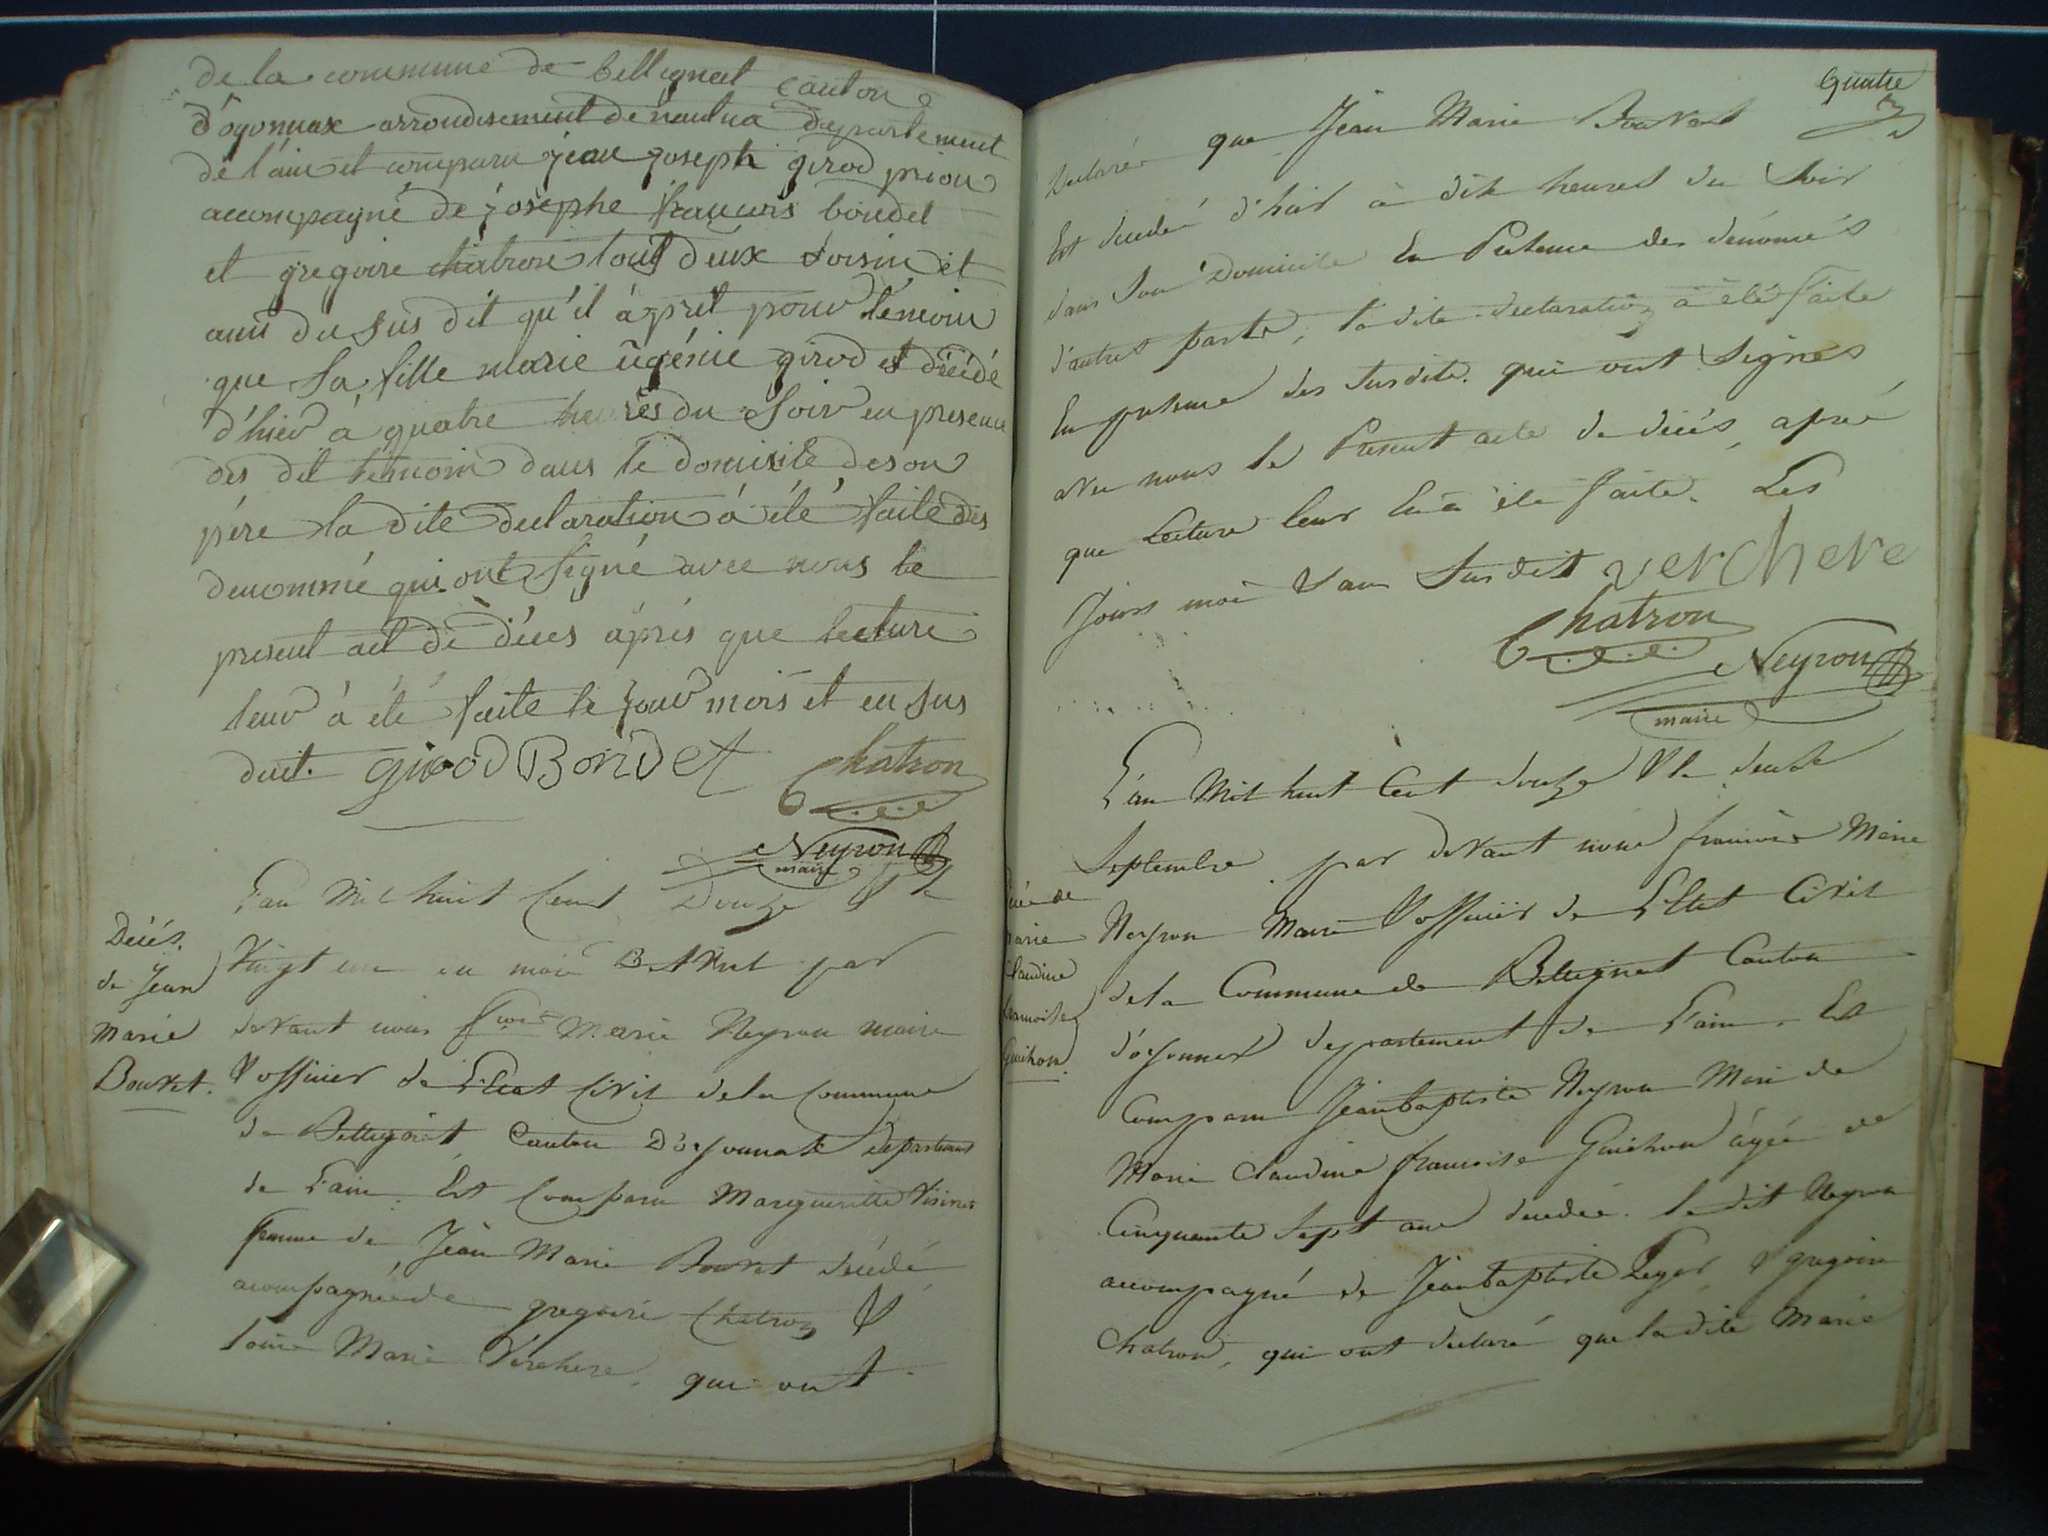 de la commune de bellignat canton
d'ôyonnax arrondisement dénantua departement
de l'ain et comparu jean joseph girod prion
accompagné de josephe françois bondet
et gregoire chatron tout deux voisin et
ami du sus dit qu'il à prit pour témoin
que sa fille marie ugénie girod et décédé
d'hier à quatre heures du soir en presence
des dit temoin dans le domisile de son
pére la dite declaration à été faite des
denommé qui ont signé avec nous le
present act de déces aprés que lecture
leur à été faite le jour mois et en sus
duit. girod Bondet Chatron
Neyron
maire
L'an Mil huit Cent Douze & le
Décés.
de Jean
Marie
Bouvet.
Vingt un du mois par
devant nous fcois Marie Neyron maire
& officier de L'Etat Civil de la Commune
de Bellignat Canton D'oyonnax departement
de L'ain. Est Comparu Margueritte
femme de Jean Marie Bouvet décédé
acompagnée de gregoire Chatron &
Marie Verchere, qui ont
quatre
declaré que Jean Marie Bouvet
Est decedé d'hier à dix heures du Soir
dans Son Domicile En Presence des dénomés
d'autres parts, la dite declaration à été faite
En presence des susdits qui ont Signés
avec nous le Present acte de décés, apres
que Lecture leur En à été faite. Les
Jours mois & an Susdit verchere
Chatron
Neyron
maire
L'an Mil huit Cent douze & le douze
Septembre par devant nous francois Marie
Neyron Maire & officier de L'Etat Civil
de la Commune de Bellignat Canton
d'oyonnax departement de L'ain. Est
de
marie
Claudine
francoise
Guichon.
Comparu Jean baptiste Neyron Mari de
Marie Claudine francoise Guichon âgée de
Cinquante Sept ans decedée. le dit Neyron
accompagné de Jean baptiste Leger & gregoire
Chatron, qui ont declaré que la dite Marie